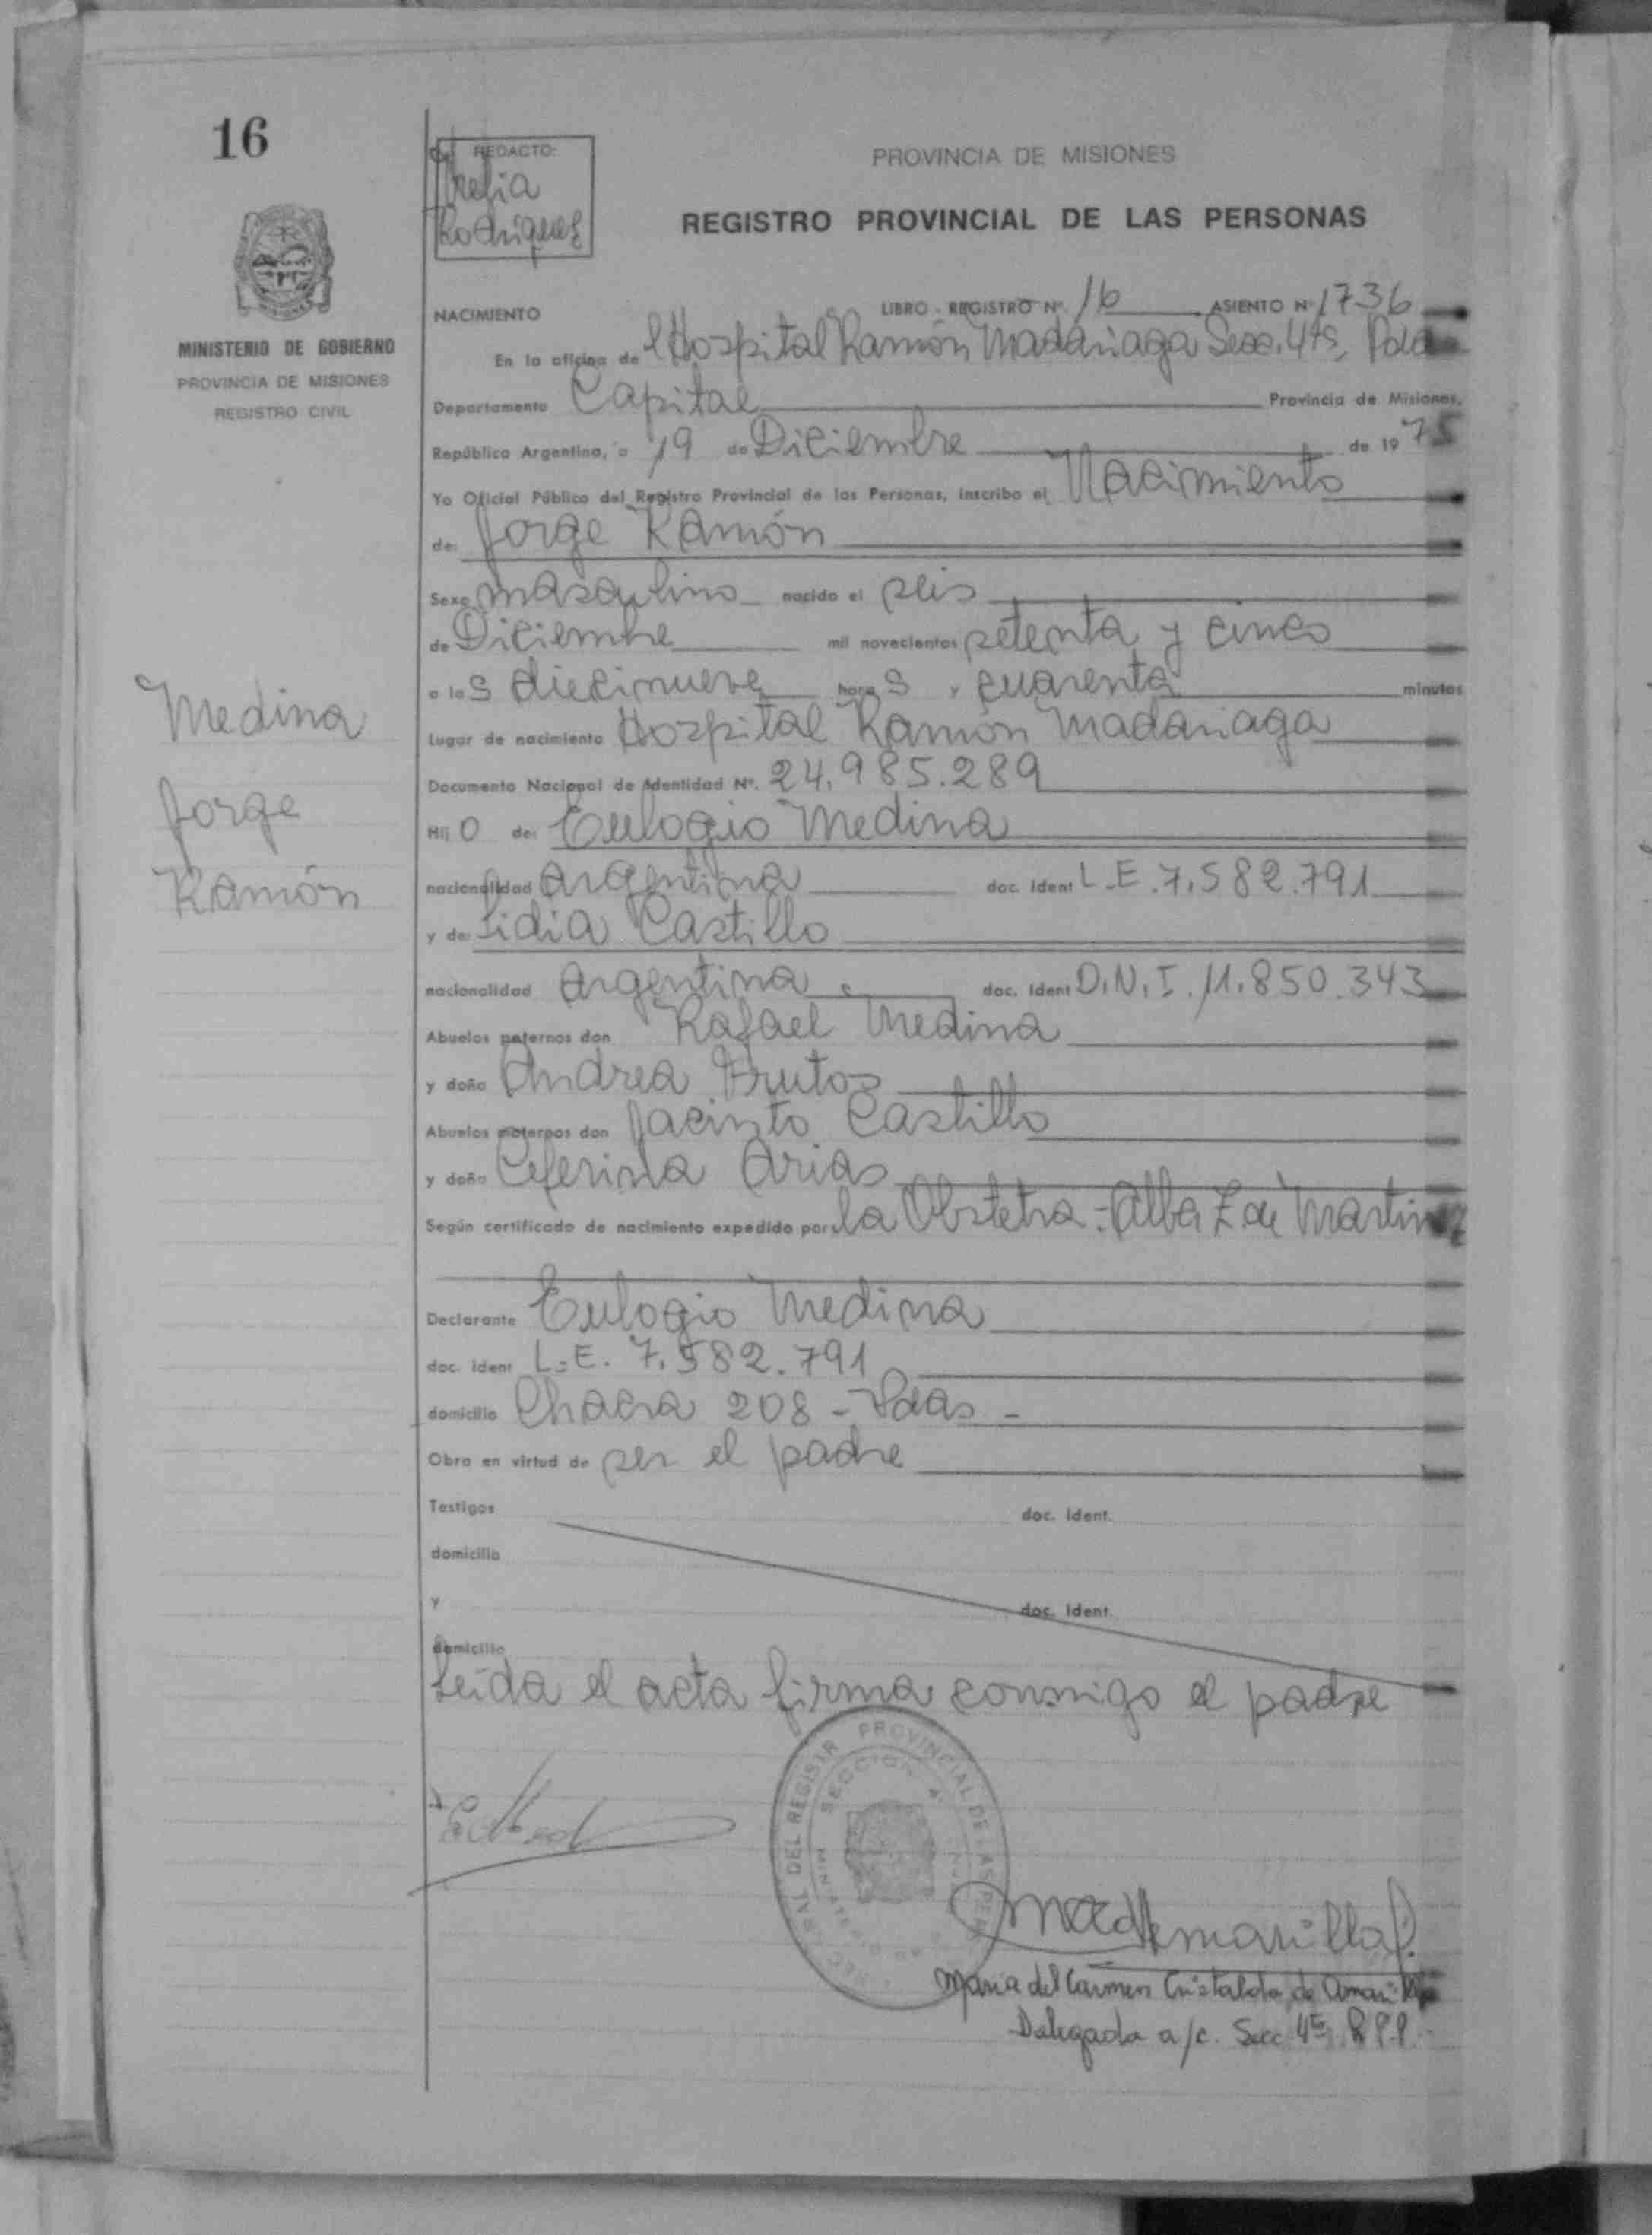 16
REDACTO:
Rodriguez
PROVINCIA DE MISIONES
REGISTRO PROVINCIAL DE LAS PERSONAS
MINISTERIO DE GOBIERNO
PROVINCIA DE MISIONES
REGISTRO CIVIL
NACIMIENTO LIBRO - REGISTRO Nº 16 ASIENTO Nº 1736
En la oficina de l Hospital Ramón Madariaga Secc. 4ta,
Departamento Capital Provincia de Misiones,
República Argentina, a 19 de Diciembre de 19 75
Yo Oficial Público del Registro Provincial de las Personas, inscribo el Nacimiento
de: Jorge Ramón
Sexo masculino nacido el seis
de Diciembre mil novecientos setenta y cinco
a las diecinueve horas y cuarenta minutos
Lugar de nacimiento Hospital Ramón Madariaga
Documento Nacional de Identidad Nº. 24.985.289
Hijo de: Eulogio Medina
nacionalidad argentina doc. ident L.E. 7.582.791
y de: Lidia Castillo
nacionalidad argentina doc. ident D.N.I. 11.850.343
Abuelos paternos don Rafael Medina
y doña Andrea Frutos
Abuelos maternos don Jacinto Castillo
y doña Ceferina Arias
Según certificado de nacimiento expedido por: la Obstetra - Alba Z de Martinez
Declarante Eulogio Medina
doc. ident L.E. 7.582.791
domicilio Chacra 208 - Pdas -
Obra en virtud de ser el padre
Testigos doc. ident.
domicilio
y doc. ident.
domicilio
Leída el acta firma conmigo el padre
Medina
Jorge
Ramón
PROVINCIAL DE LAS
SECCION 4
DEL REGISTR
Maria del Carmen Cristaldo de Amarilla
Delegada a/c. Secc 4ta R.P.P.